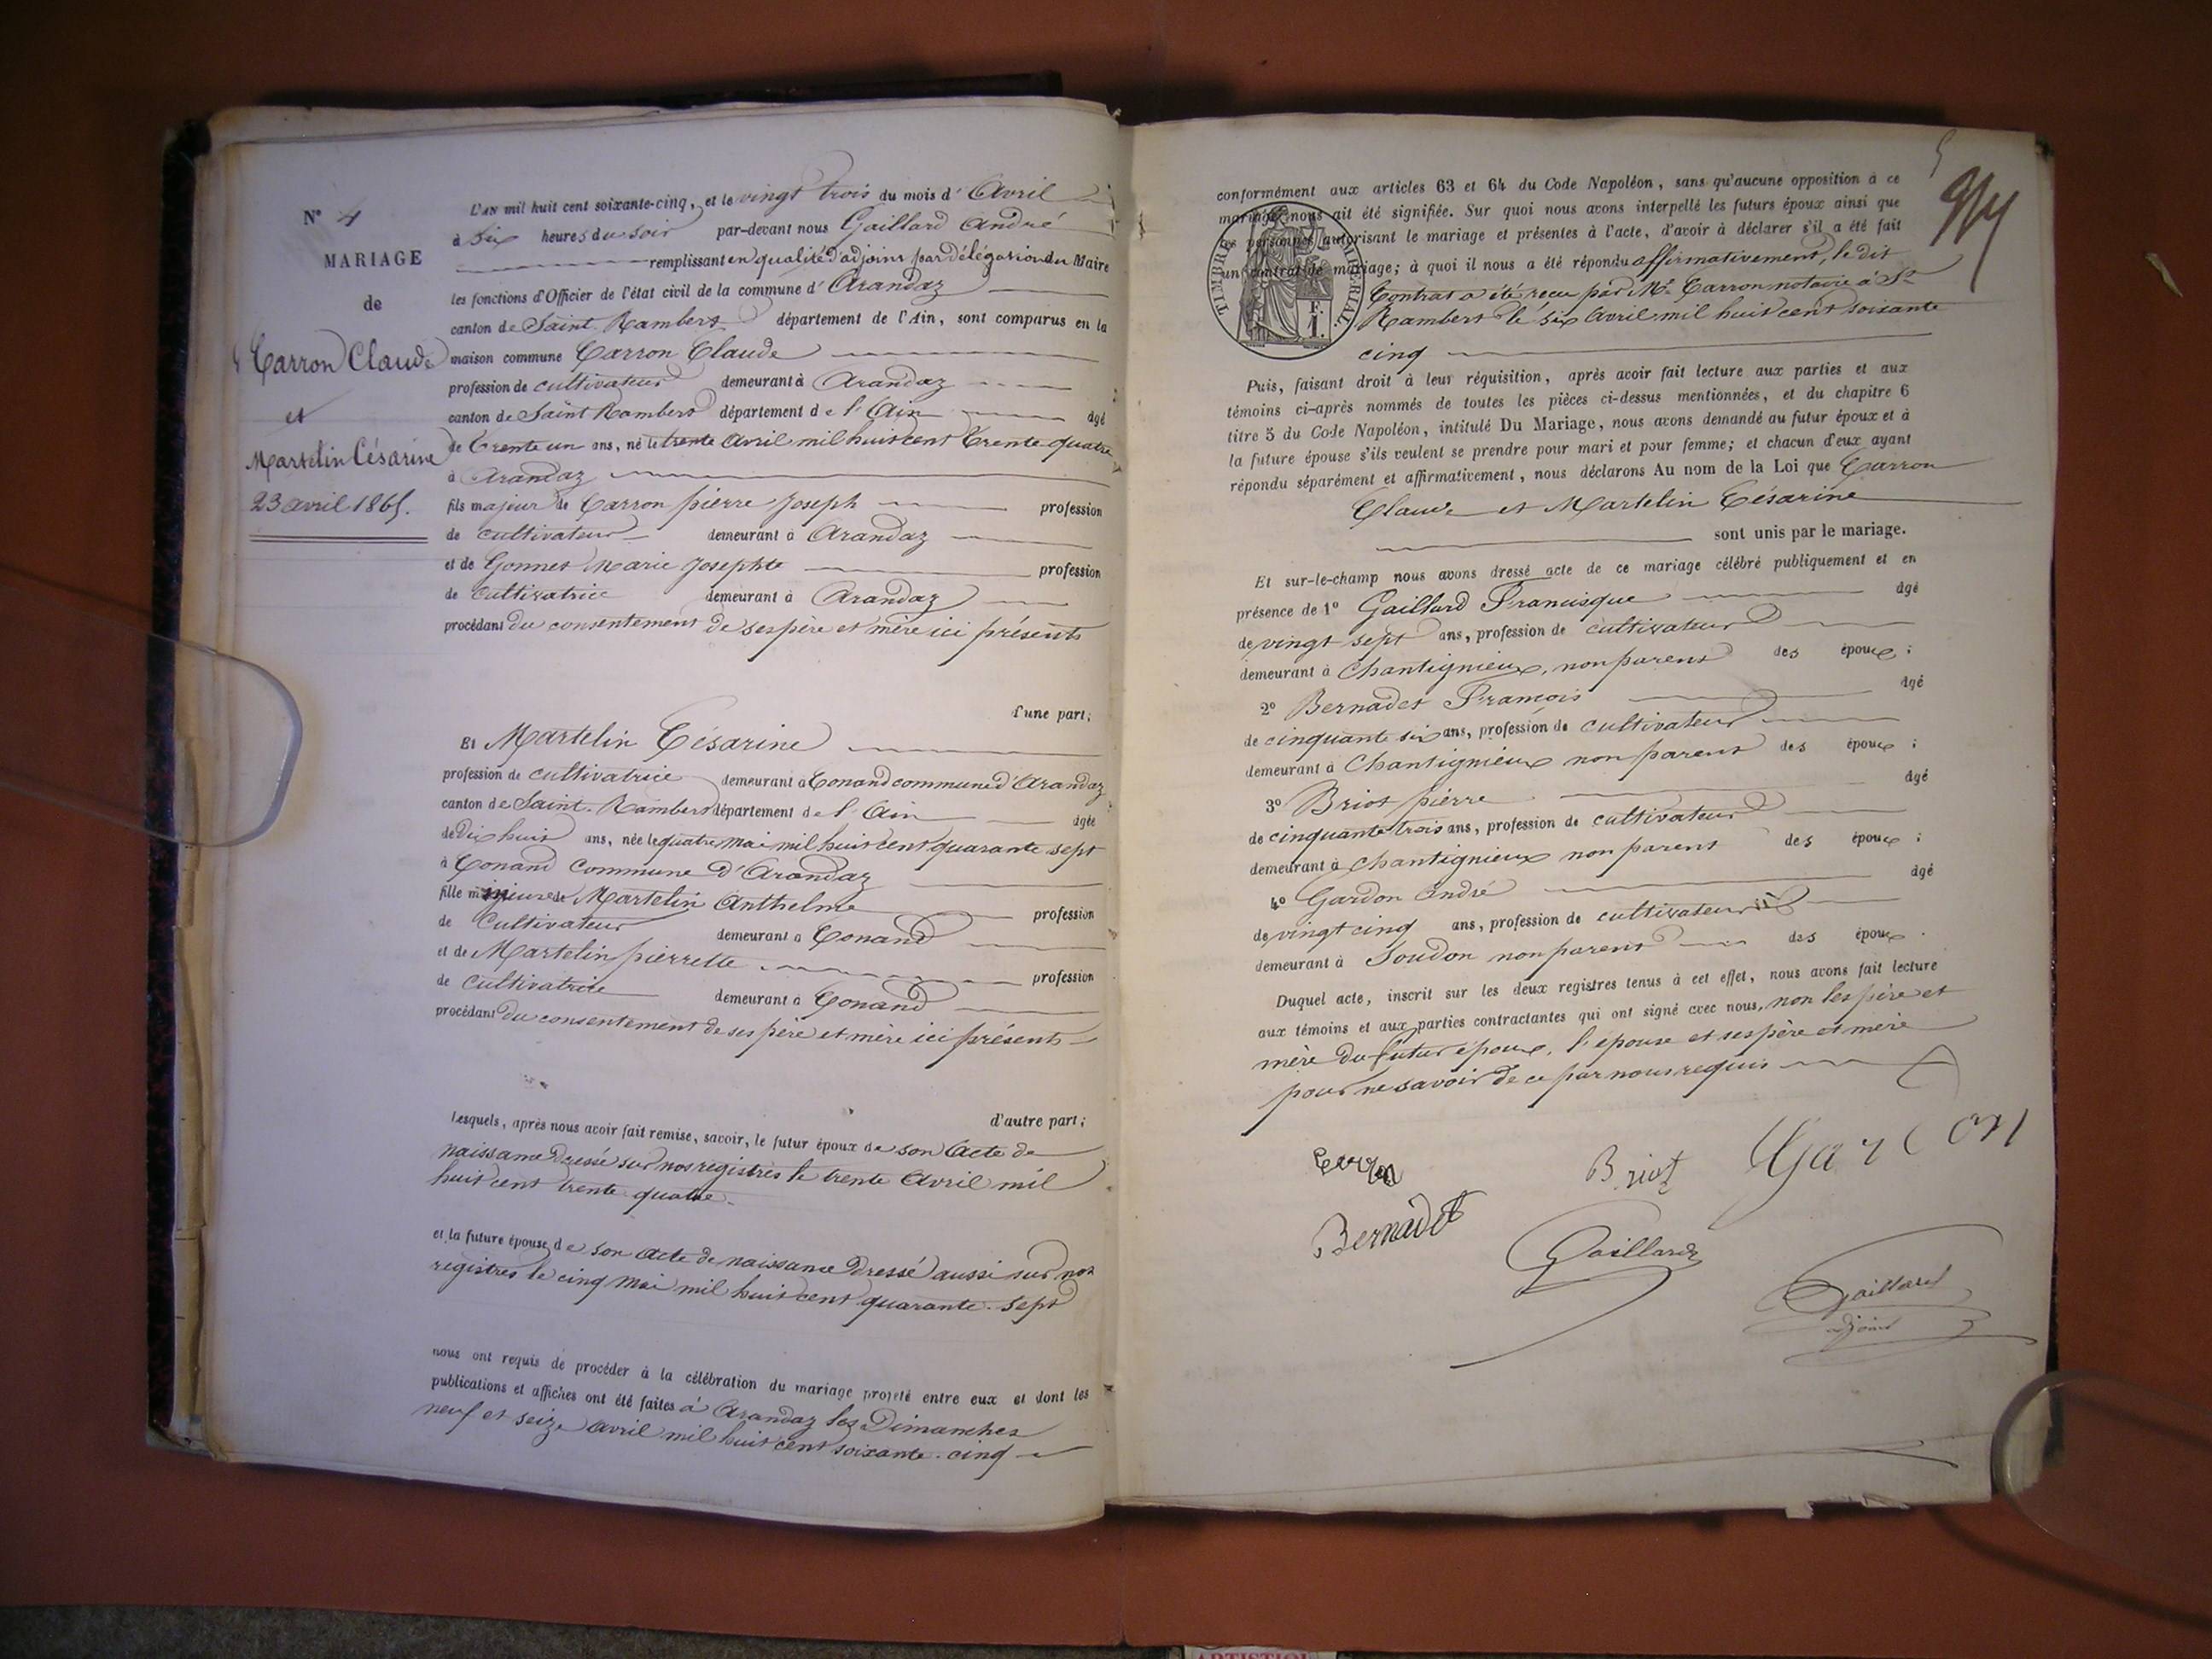 N° 4
MARIAGE
de
Carron Claude
et
Martelin Césarine
23 avril 1865.
L'AN mil huit cent soixante-cinq, et le vingt trois du mois d'Avril
à six heures du soir par-devant nous Gaillard André
remplissant en qualité d'adjoint par délégation du Maire
les fonctions d'Officier de l'état civil de la commune d'Arandaz
canton de Saint Rambert département de l'Ain, sont comparus en la
maison commune Carron Claude
profession de cultivateur demeurant à Arandaz
canton de Saint Rambert département de l'Ain âgé
de trente un ans, né le trente Avril mil huit cent trente quatre
à Arandaz
fils majeur de Carron pierre Joseph profession
de cultivateur demeurant à Arandaz
et de Gonnet Marie Josephte profession
de cultivatrice demeurant à Arandaz
procédant du consentement de ses père et mère ici présents
d'une part;
Et Martelin Césarine
profession de cultivatrice demeurant à Conand commune d'Arandaz
canton de Saint-Rambert département de l'Ain âgée
de dix huit ans, née le quatre Mai mil huit cent quarante sept
à Conand Commune d'Arandaz
fille mineure de Martelin Anthelme profession
de Cultivateur demeurant à Conand
et de Martelin pierrette profession
de cultivatrice demeurant à Conand
procédant du consentement de ses père et mère ici présents
d'autre part;
Lesquels, après nous avoir fait remise, savoir, le futur époux de son Acte de
naissance dressé sur nos registres le trente Avril mil
huit cent trente quatre.
et la future épouse, de son acte de naissance dressé aussi sur nos
registres le cinq Mai mil huit cent quarante. sept
nous ont requis de procéder à la célébration du mariage projeté entre eux et dont les
publications et affiches ont été faites à Arandaz les Dimanches
neuf et seize avril mil huit cent soixante. cinq
conformément aux articles 63 et 64 du Code Napoléon, sans qu'aucune opposition à ce
mariage nous ait été signifiée. Sur quoi nous avons interpellé les futurs époux ainsi que
les personnes autorisant le mariage et présentes à l'acte, d'avoir à déclarer s'il a été fait
un contrat de mariage; à quoi il nous a été répondu affirmativement, le dit
Contrat a été reçu par Me Carron notaire à St
Rambert le six Avril mil huit cent soixante
cinq
TIMBRE IMPÉRIAL
F.
1.
Puis, faisant droit à leur réquisition, après avoir fait lecture aux parties et aux
témoins ci-après nommés de toutes les pièces ci-dessus mentionnées, et du chapitre 6
titre 5 du Code Napoléon, intitulé Du Mariage, nous avons demandé au futur époux et à
la future épouse s'ils veulent se prendre pour mari et pour femme; et chacun d'eux ayant
répondu séparément et affirmativement, nous déclarons Au nom de la Loi que Carron
Claude et Martelin Césarine
sont unis par le mariage.
Et sur-le-champ nous avons dressé acte de ce mariage célébré publiquement et en
présence de 1° Gaillard Francisque âgé
de vingt sept ans, profession de cultivateur
demeurant à Chantignieux, non parent des époux;
2° Bernadet François âgé
de cinquante six ans, profession de cultivateur
demeurant à Chantignieux non parent des époux;
3° Briot pierre âgé
de cinquante trois ans, profession de cultivateur
demeurant à Chantignieux non parent des époux;
4° Gardon André âgé
de vingt cinq ans, profession de cultivateur
demeurant à Soudon non parent des époux.
Duquel acte, inscrit sur les deux registres tenus à cet effet, nous avons fait lecture
aux témoins et aux parties contractantes qui ont signé avec nous, non les père et
mère du futur époux, l'épouse et ses père et mère
pour ne savoir de ce par nous requis
Carron
Briot
Gardon
Bernadet
Gaillard
Gaillard
adjoint